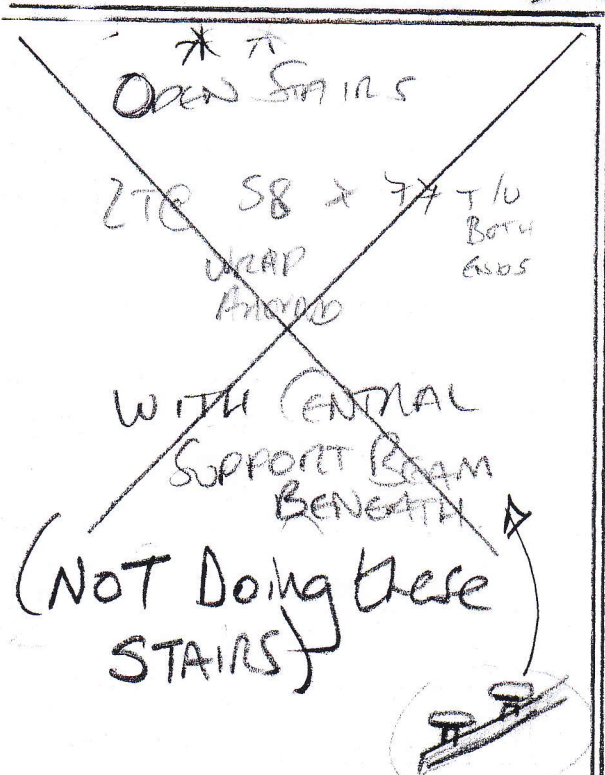 * *
OPEN STAIRS
58 x 77 T/U
BOTH
ENDS
WRAP
AROUND
WITH CENTRAL
SUPPORT BEAM
BENEATH
(NOT Doing these
STAIRS)